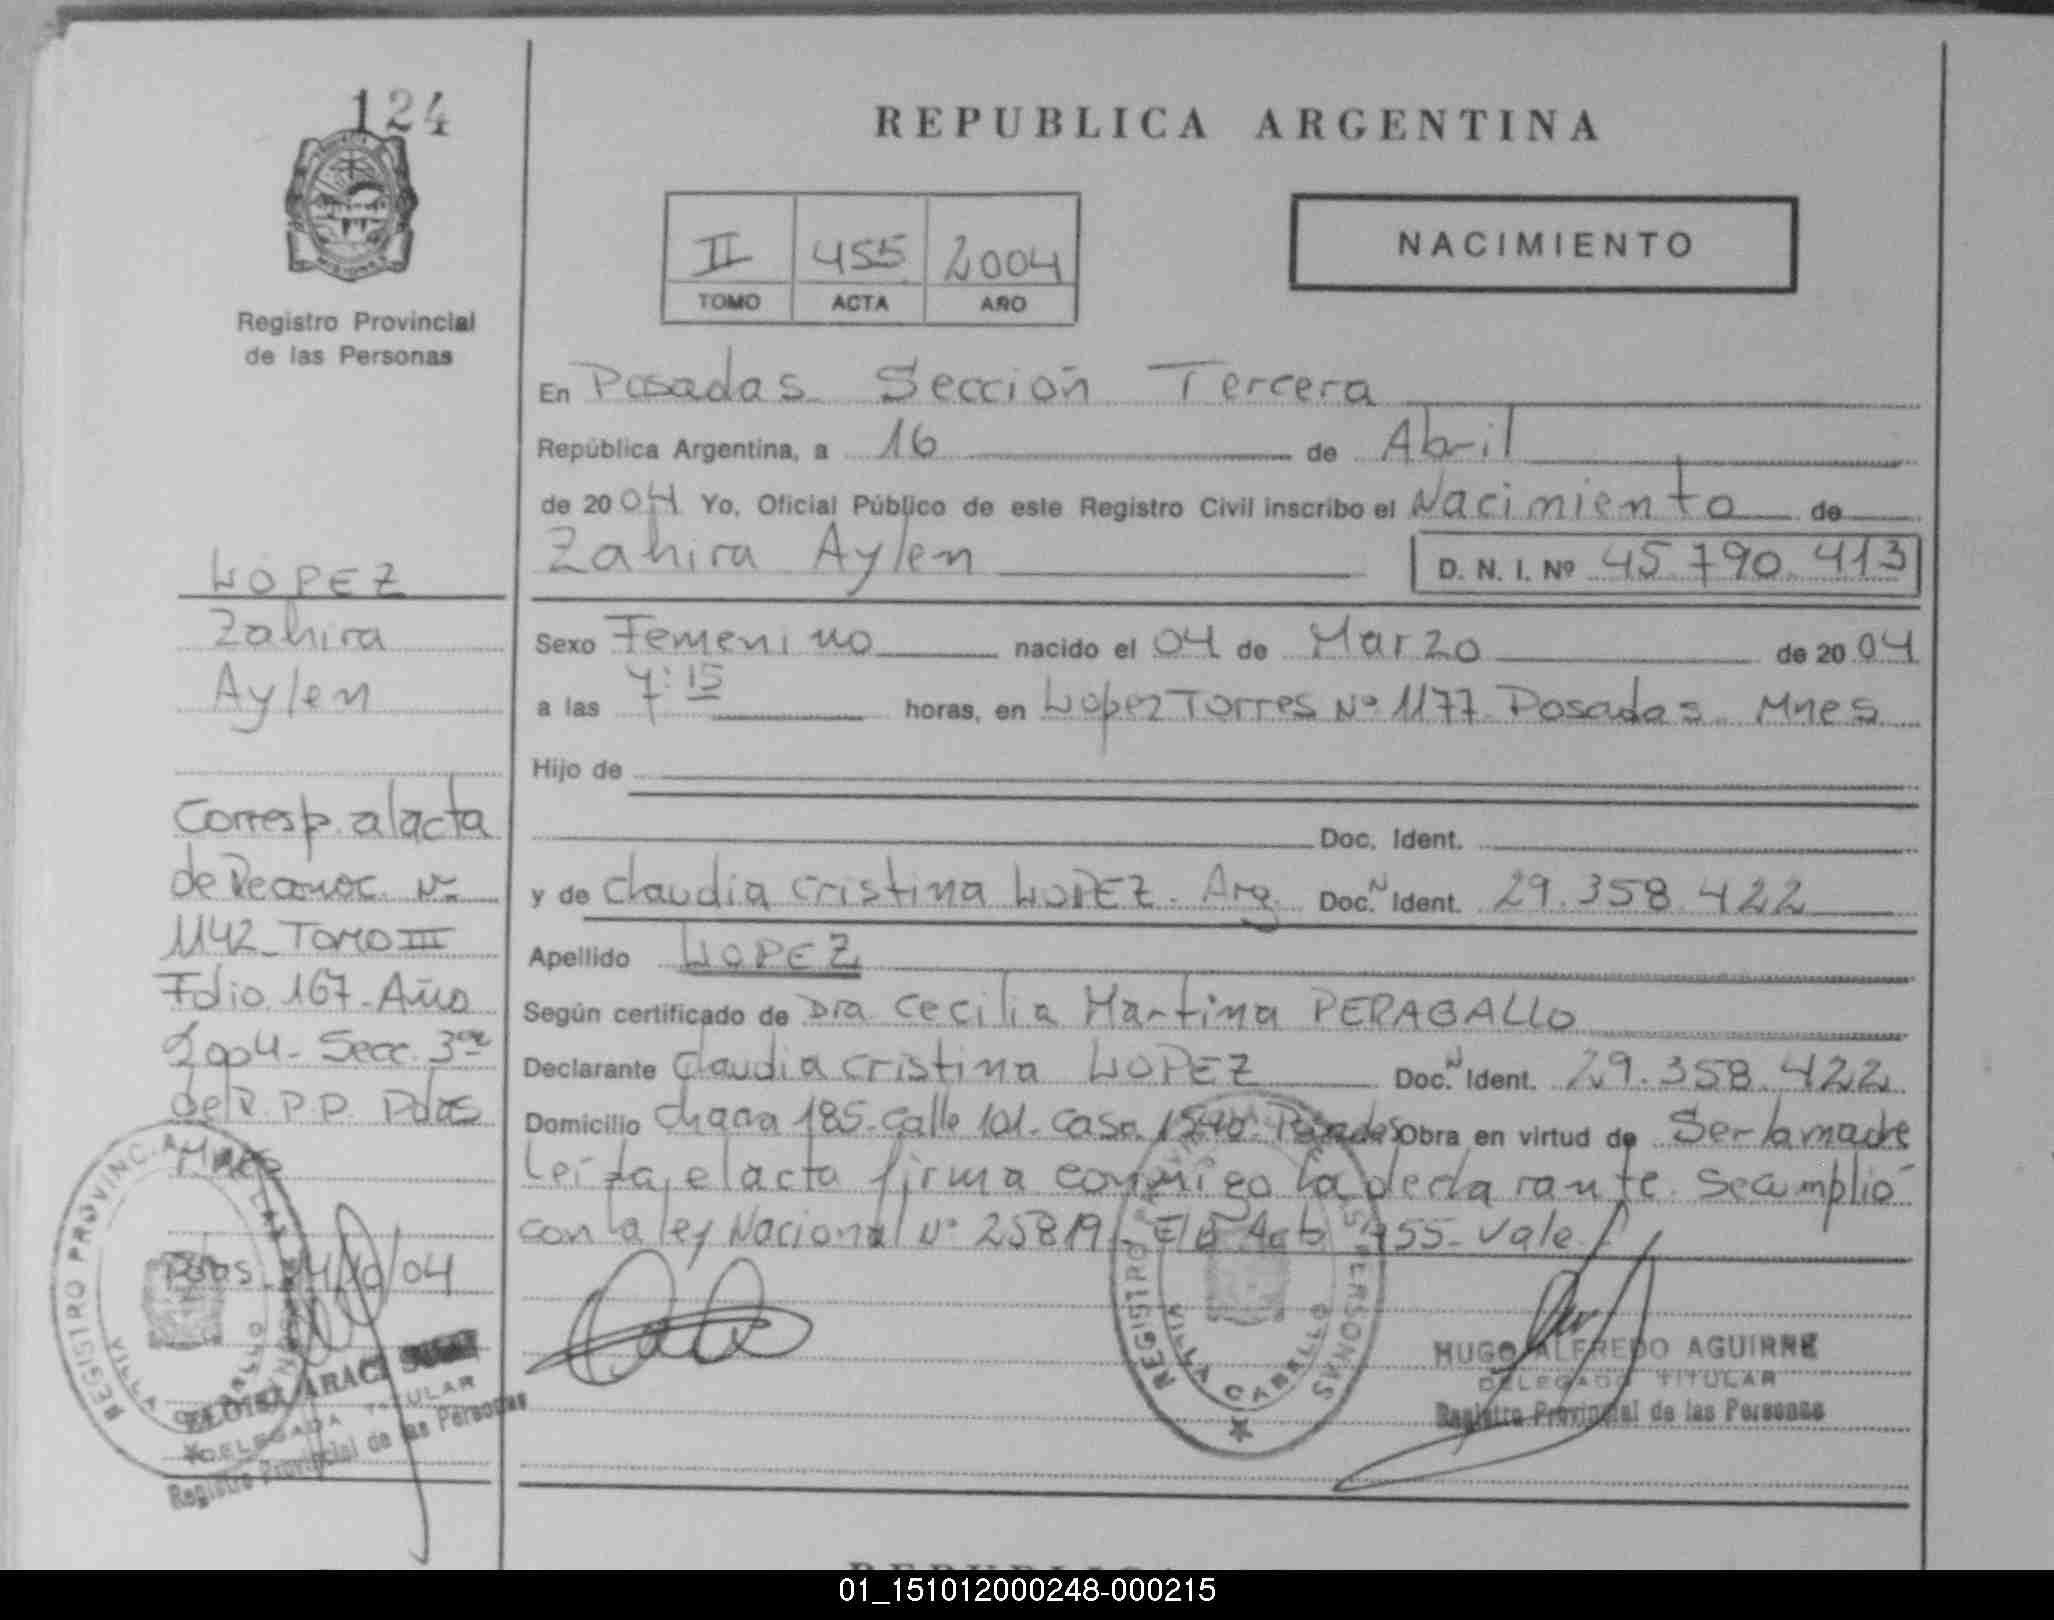 124
Registro Provincial
de las Personas
REPUBLICA ARGENTINA
II 455 2004
TOMO ACTA AÑO
NACIMIENTO
En Posadas Sección Tercera
República Argentina, a 16 de Abril
de 2004 Yo, Oficial Público de este Registro Civil inscribo el Nacimiento de
Zahira Aylen D. N. I. Nº 45.790.413
Sexo Femenino nacido el 04 de Marzo de 2004
a las 7:15 horas, en Lopez Torres Nº 1177 Posadas Mnes
Hijo de
Doc. Ident.
y de Claudia Cristina LOPEZ. Arg. Doc. N Ident. 29.358.422
Apellido LOPEZ
Según certificado de Dra Cecilia Martina PERAGALLO
Declarante Claudia Cristina LOPEZ Doc. N Ident. 29.358.422
Domicilio chacra 185-Calle 101-Casa Posadas Obra en virtud de Ser la madre
Leída el acta firma conmigo la declarante. Se cumplió
con la ley Nacional Nº 25819. 455- Vale.
LOPEZ
Zahira
Aylen
Corresp. al acta
de Reconoc. Nº
1142 Tomo III
Folio 167-Año
2004- Secc. 3ra
del R.P.P. Pdas
Mnes
Pdas 04
REGISTRO PROVINCIAL DE LAS PERSONAS
VILLA CABELLO
ELOISA ARACI
DELEGADA TITULAR
Registro Provincial de las Personas
REGISTRO PROVINCIAL DE LAS PERSONAS
VILLA CABELLO
HUGO ALFREDO AGUIRRE
DELEGADO TITULAR
Registro Provincial de las Personas
01_151012000248-000215